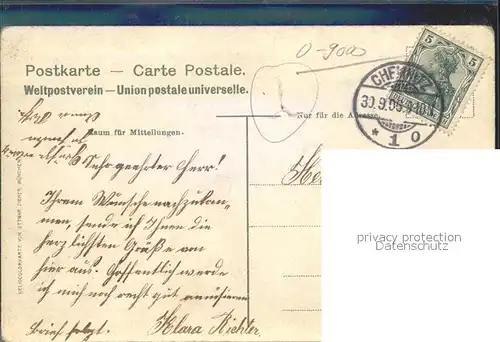 0-9000
Postkarte — Carte Postale.
Weltpostverein — Union postale universelle.
CHEMNITZ
30.9.05.9-10
* 1 0
5
5
Nur für die Adresse
Raum für Mitteilungen.
Sehr geehrter Herr!
Ihrem Wunsche nachzukom-
men, sende ich Ihnen die
herzlichsten Grüße von
hier aus. Hoffentlich werde
ich mich noch recht gut amüsieren
Brief folgt. Klara Richter.
privacy protection
Datenschutz